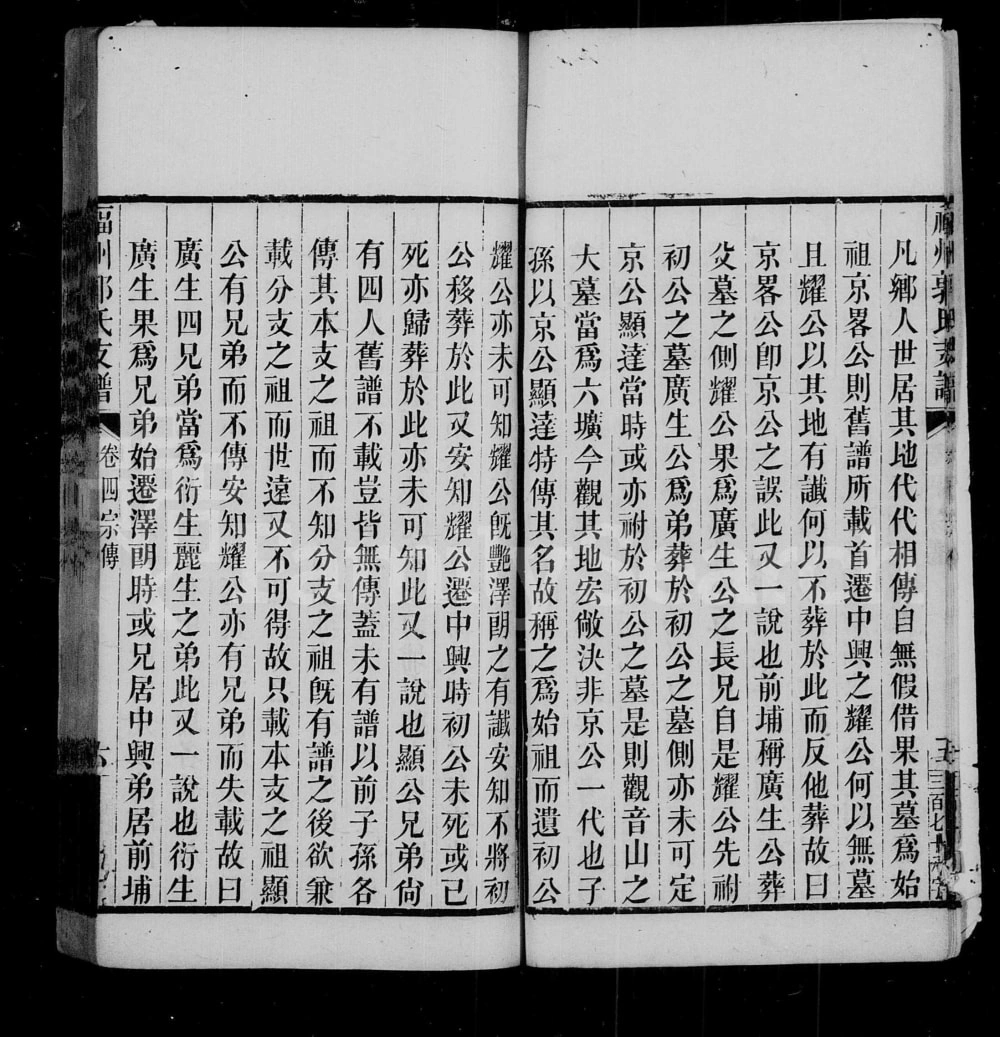 福州郭氏支譜
凡鄉人世居其地代代相傳自無假借果其墓爲始
祖京畧公則舊譜所載首遷中興之耀公何以無墓
且耀公以其地有讖何以不葬於此而反他葬故曰
京畧公卽京公之誤此又一說也前埔稱廣生公葬
父墓之側耀公果爲廣生公之長兄自是耀公先祔
初公之墓廣生公爲弟葬於初公之墓側亦未可定
京公顯達當時或亦祔於初公之墓是則觀音山之
大墓當爲六壙今觀其地宏敞決非京公一代也子
孫以京公顯達特傳其名故稱之爲始祖而遺初公
耀公亦未可知耀公旣艷澤朗之有讖安知不將初
公移葬於此又安知耀公遷中興時初公未死或已
死亦歸葬於此亦未可知此又一說也顯公兄弟尙
有四人舊譜不載豈皆無傳蓋未有譜以前子孫各
傳其本支之祖而不知分支之祖旣有譜之後欲兼
載分支之祖而世遠又不可得故只載本支之祖顯
公有兄弟而不傳安知耀公亦有兄弟而失載故曰
廣生四兄弟當爲衍生麗生之弟此又一說也衍生
廣生果爲兄弟始遷澤朗時或兄居中興弟居前埔
福州郭氏支譜
卷四宗傳
六